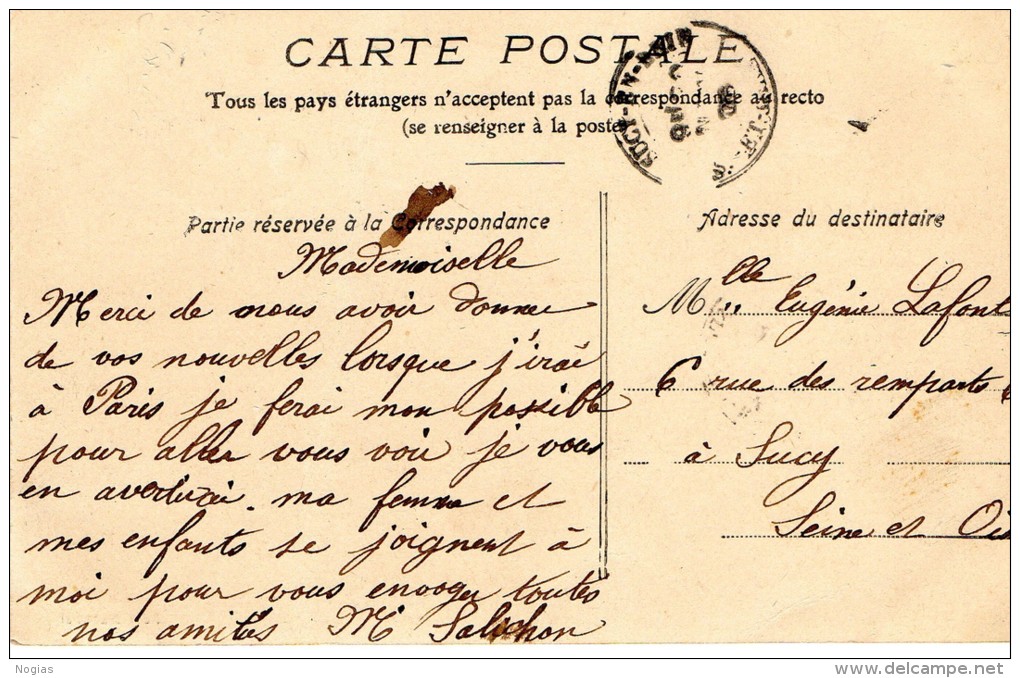 CARTE POSTALE
Tous les pays étrangers n'acceptent pas la correspondance au recto
(se renseigner à la poste)
SUCY-EN-BRIE
Partie réservée à la Correspondance
Adresse du destinataire
Mademoiselle
Merci de nous avoir donne
de vos nouvelles lorsque j'irai
à Paris je ferai mon possible
pour aller vous voir je vous
en avertirai. ma femme et
mes enfants se joignent à
moi pour vous envoyer toutes
nos amitiés M Salichon
Mlle Eugénie Lafont
6 rue des remparts
à Sucy
Seine et Ois
Nogias
www.delcampe.net